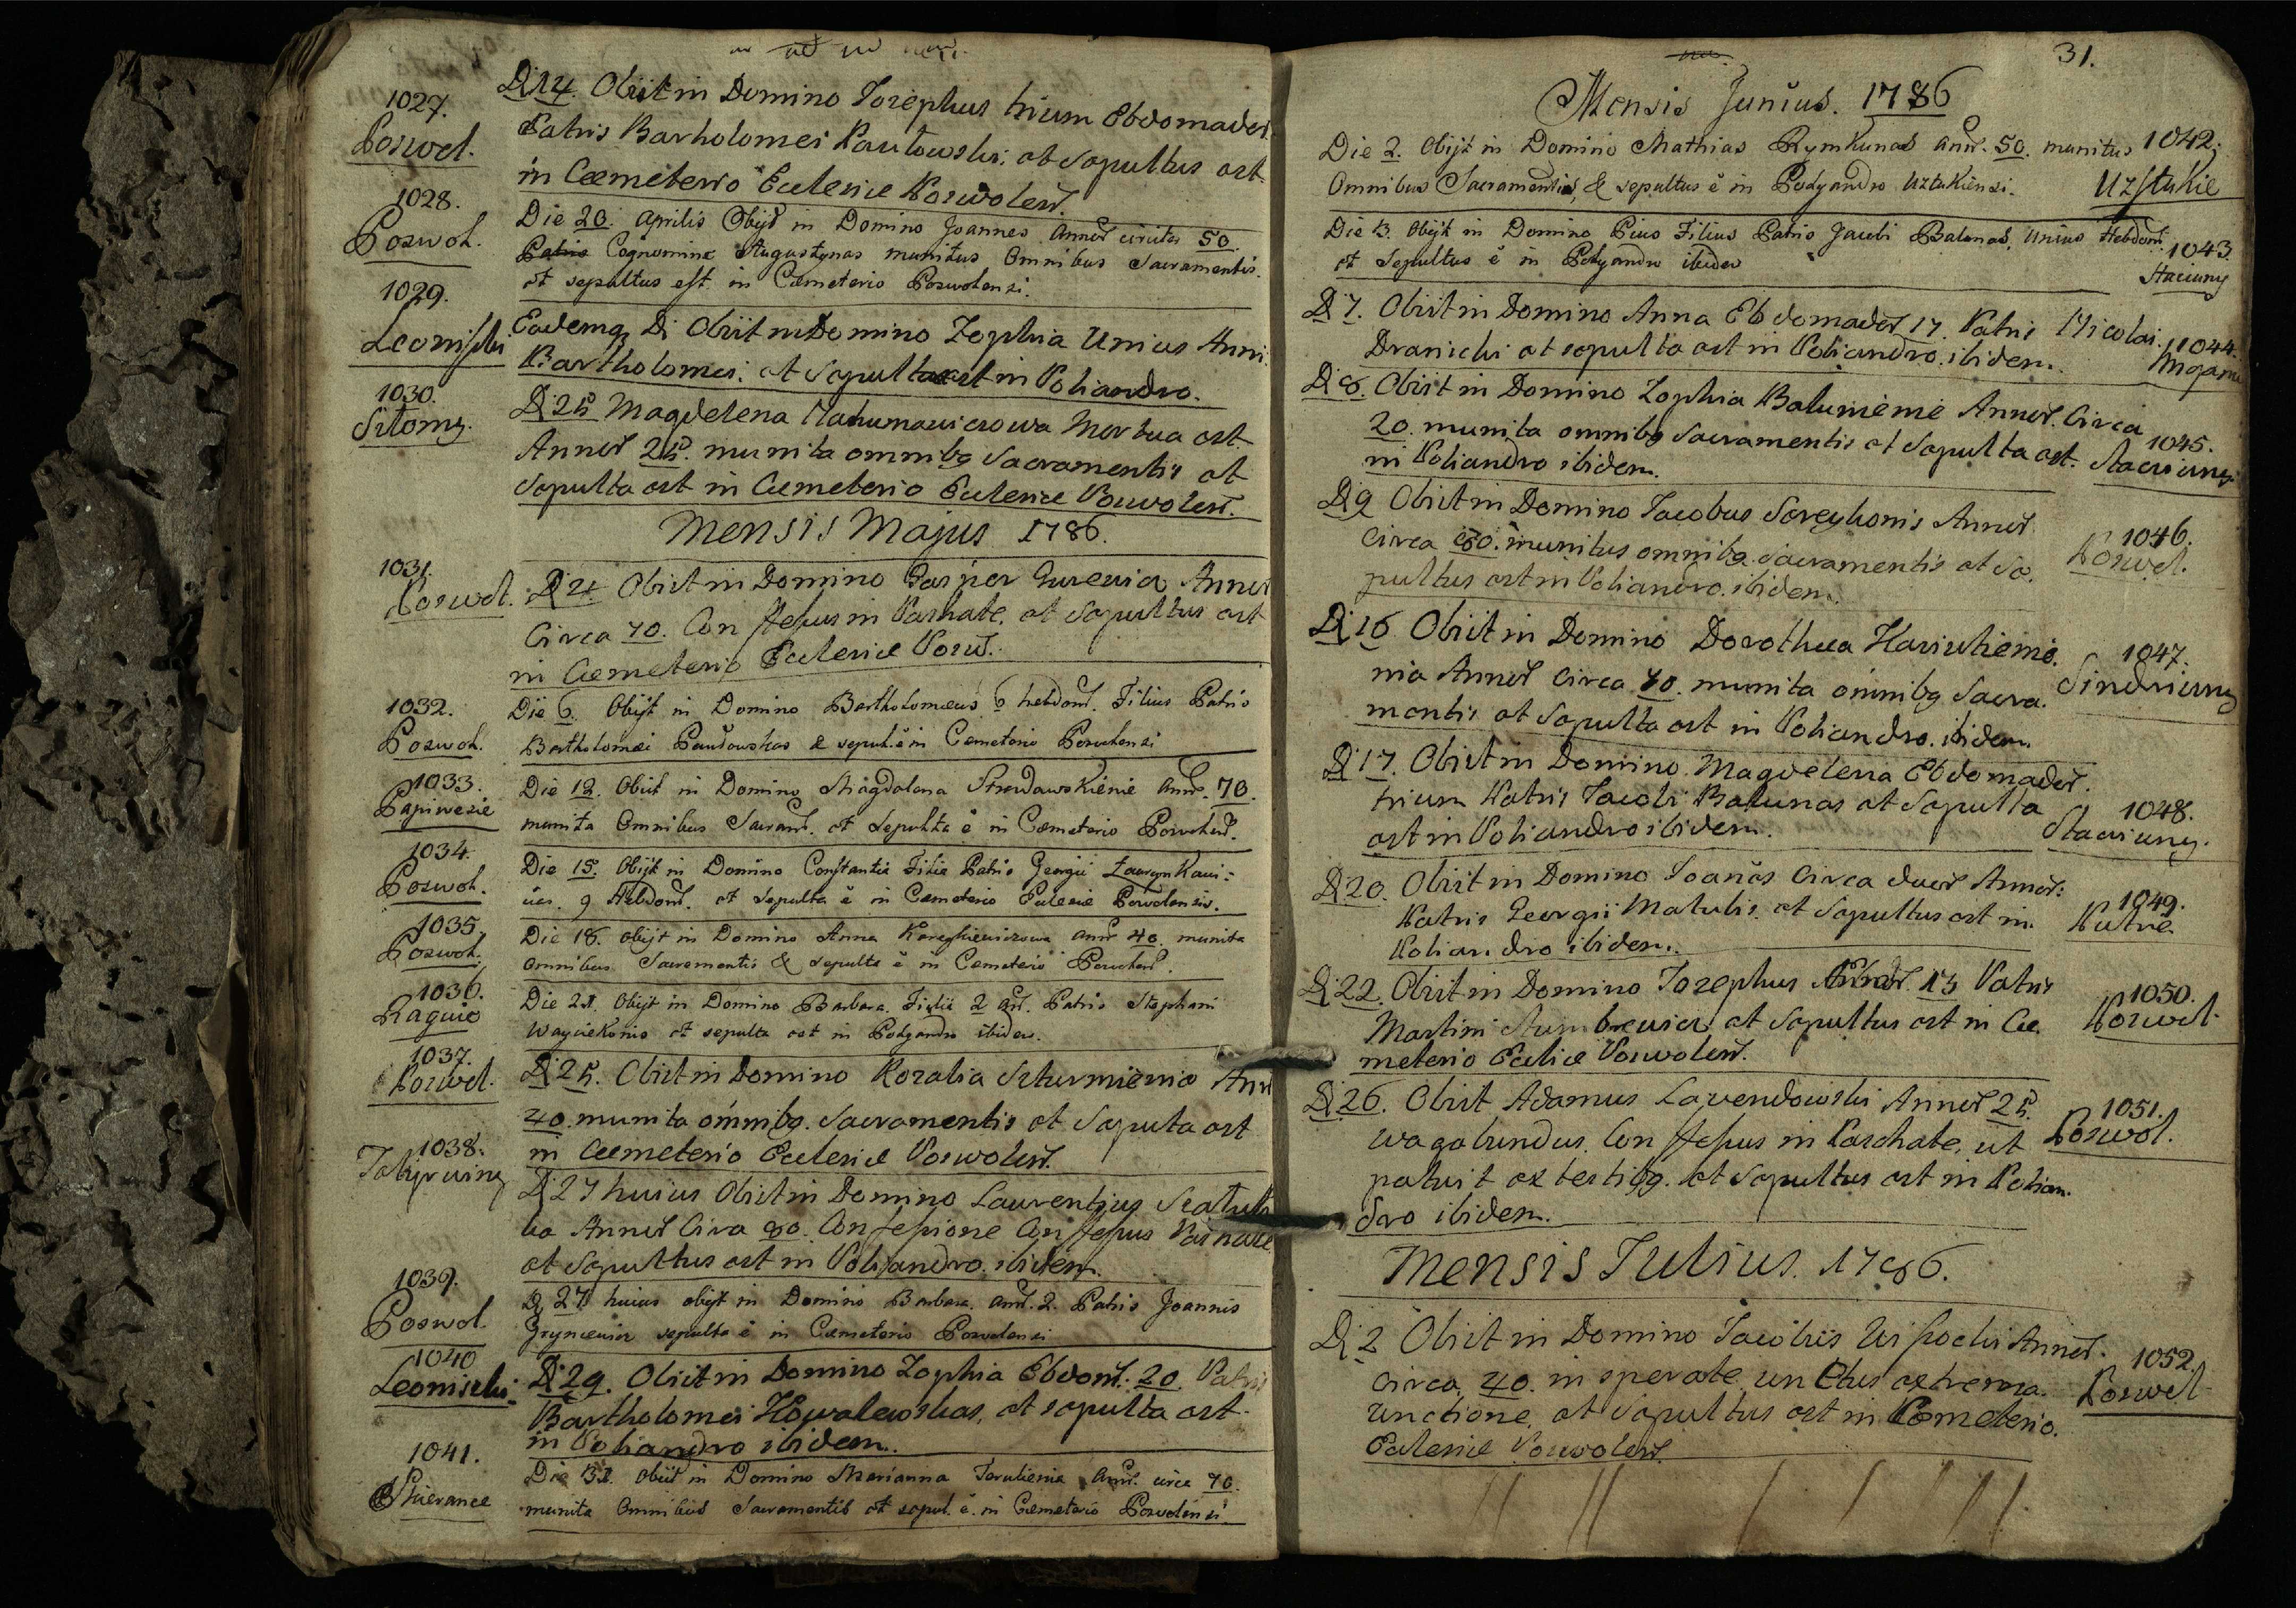 1027.
Poswol.
Di 14. Obiit in Domino Iozephus trium Ebdomader.
Patris Bartholomei Pautowski; et Sepultus est
in Cœmeterio Eclesiæ Poswolens.
1028.
Poswol.
Die 20. Aprilis Obijt in Domino Joannes Annor circiter 50.
Patris Cognomine Augustynas munitus Omnibus Sacramentis.
et sepultus est in Cœmeterio Poswolensi.
1029.
Leoniszki
Eademq Di Obiit in Domino Zophia Unius Anni
Bartholomei. et Sepulta est in Poliandro.
1030.
Sitomy.
Di 25 Magdelena Mortua est
Annor 25. munita omnibq Sacramentis et
Sepulta est in Cœmeterio Eclesiæ Poswolens.
Mensis Majus 1786.
1031.
Poswol.
Di 4 Obiit in Domino Gasper Gurewicz Annor
Circa 70. Confessus in Paschate. et Sepultus est
in Cœmeterio Eclesiæ Posw.
1032.
Poswol.
Die 6. Obijt in Domino Bartholomæus 6 hebdom. Filius Patris
Bartholomæi Pautowskas & sepul. ẽ in Cemeterio Poswolensi
1033.
Papiwezie
Die 12. Obiit in Domino Magdalena Annr. 70.
munita Omnibus Sacram. et Sepulta ẽ in Cœmeterio Poswolens.
1034.
Poswol.
Die 15. Obijt in Domino Constantia Filia Patris Georgii Laurynkawi-
cius. 9 Hebdom. et Sepulta ẽ in Cœmeterio Eclesiæ Poswolensis.
1035.
Poswol.
Die 18. Obijt in Domino Anna Annr 40. munita
Omnibus Sacramentis & sepulta ẽ in Cemeterio Poswolens.
1036.
Raguie
Die 21. Obijt in Domino Barbara. Filia 2 an. Patris Stephani
et sepulta est in Polyandro ibidem.
1037.
Poswol.
Di 25. Obiit in Domino Rozalia Szturmienia Ann
40. munita omnibq. Sacramentis et Sepulta est
in Cœmeterio Eclesiæ Poswolens.
1038.
Di 27 huius Obiit in Domino Laurentius
Annor Circa 80. Confessione Confessus Paschate
et Sepultus est in Poliandro. ibidem.
1039.
Poswol.
D 27 huius obijt in Domino Barbara. Ann. 2. Patris Joannis
sepulta ẽ in Cœmeterio Poswolensi
1040
Leoniszki.
Di 29. Obiit in Domino Zophia Ebdom. 20. Patris
Bartholomei Kowalewskas, et sepulta est
in Poliandro ibidem.
1041.
Die 31. Obiit in Domino Marianna Annr. circa 70.
munita Omnibus Sacramentis et sepul. ẽ. in Cœmeterio Poswolensi
31.
Mensis Junius. 1786
Die 2. Obijt in Domino Mathias Rymkunas Annr. 50. munitus
Omnibus Sacramentis, & sepultus ẽ in Polyandro Uztukiensi.
1042.
Uzstukie
Die 3. Obijt in Domino Pius Filius Patris Jacobi Balunas, Unius Hebdom.
et Sepultus ẽ in Polyandro ibidem
1043.
Staciuny
Di 7. Obiit in Domino Anna Ebdomader 17. Patris Nicolai.
Dranicki et sepulta est in Poliandro. ibidem.
1044.
Di 8. Obiit in Domino Zophia Balunienie Annor. Circa
20. munita omnibq Sacramentis et Sepulta est.
in Poliandro ibidem.
1045.
Staciuny
Di 9 Obiit in Domino Iacobus Annor
Circa 80. munitus omnibq. Sacramentis et Se.
pultus est in Poliandro. ibidem.
1046.
Poswol.
Di 16 Obiit in Domino Dorothea
nia Annor Circa 70. munita omnibq Sacra.
mentis et Sepulta est in Poliandro. ibidem.
1047.
Sindriuny
Di 17. Obiit in Domino. Magdelena Ebdomader.
trium Patris Iacobi Balunas et Sepulta
est in Poliandro ibidem.
1048.
Staciuny.
Di 20. Obiit in Domino Ioanes Circa duor Annor:
Patris Georgii Matulis. et Sepultus est in.
Poliandro ibidem.
1049.
Di 22. Obiit in Domino Iozephus 13 Patris
Martini et Sepultus est in Cœ.
meterio Eclesiæ Poswolens.
1050.
Poswol.
Di 26. Obiit Adamus Lawendowski Annor 25.
wagabundus. Confessus in Paschate, ut
patuit ex testibq. et Sepultus est in Polian.
dro ibidem.
1051.
Poswol.
Mensis Iulius. 1786.
Di 2 Obiit in Domino Iacobus Annor.
Circa, 40. insperate, unctus extrema.
unctione, et Sepultus est in Cœmeterio.
Eclesiæ Poswolens.
1052.
Poswol